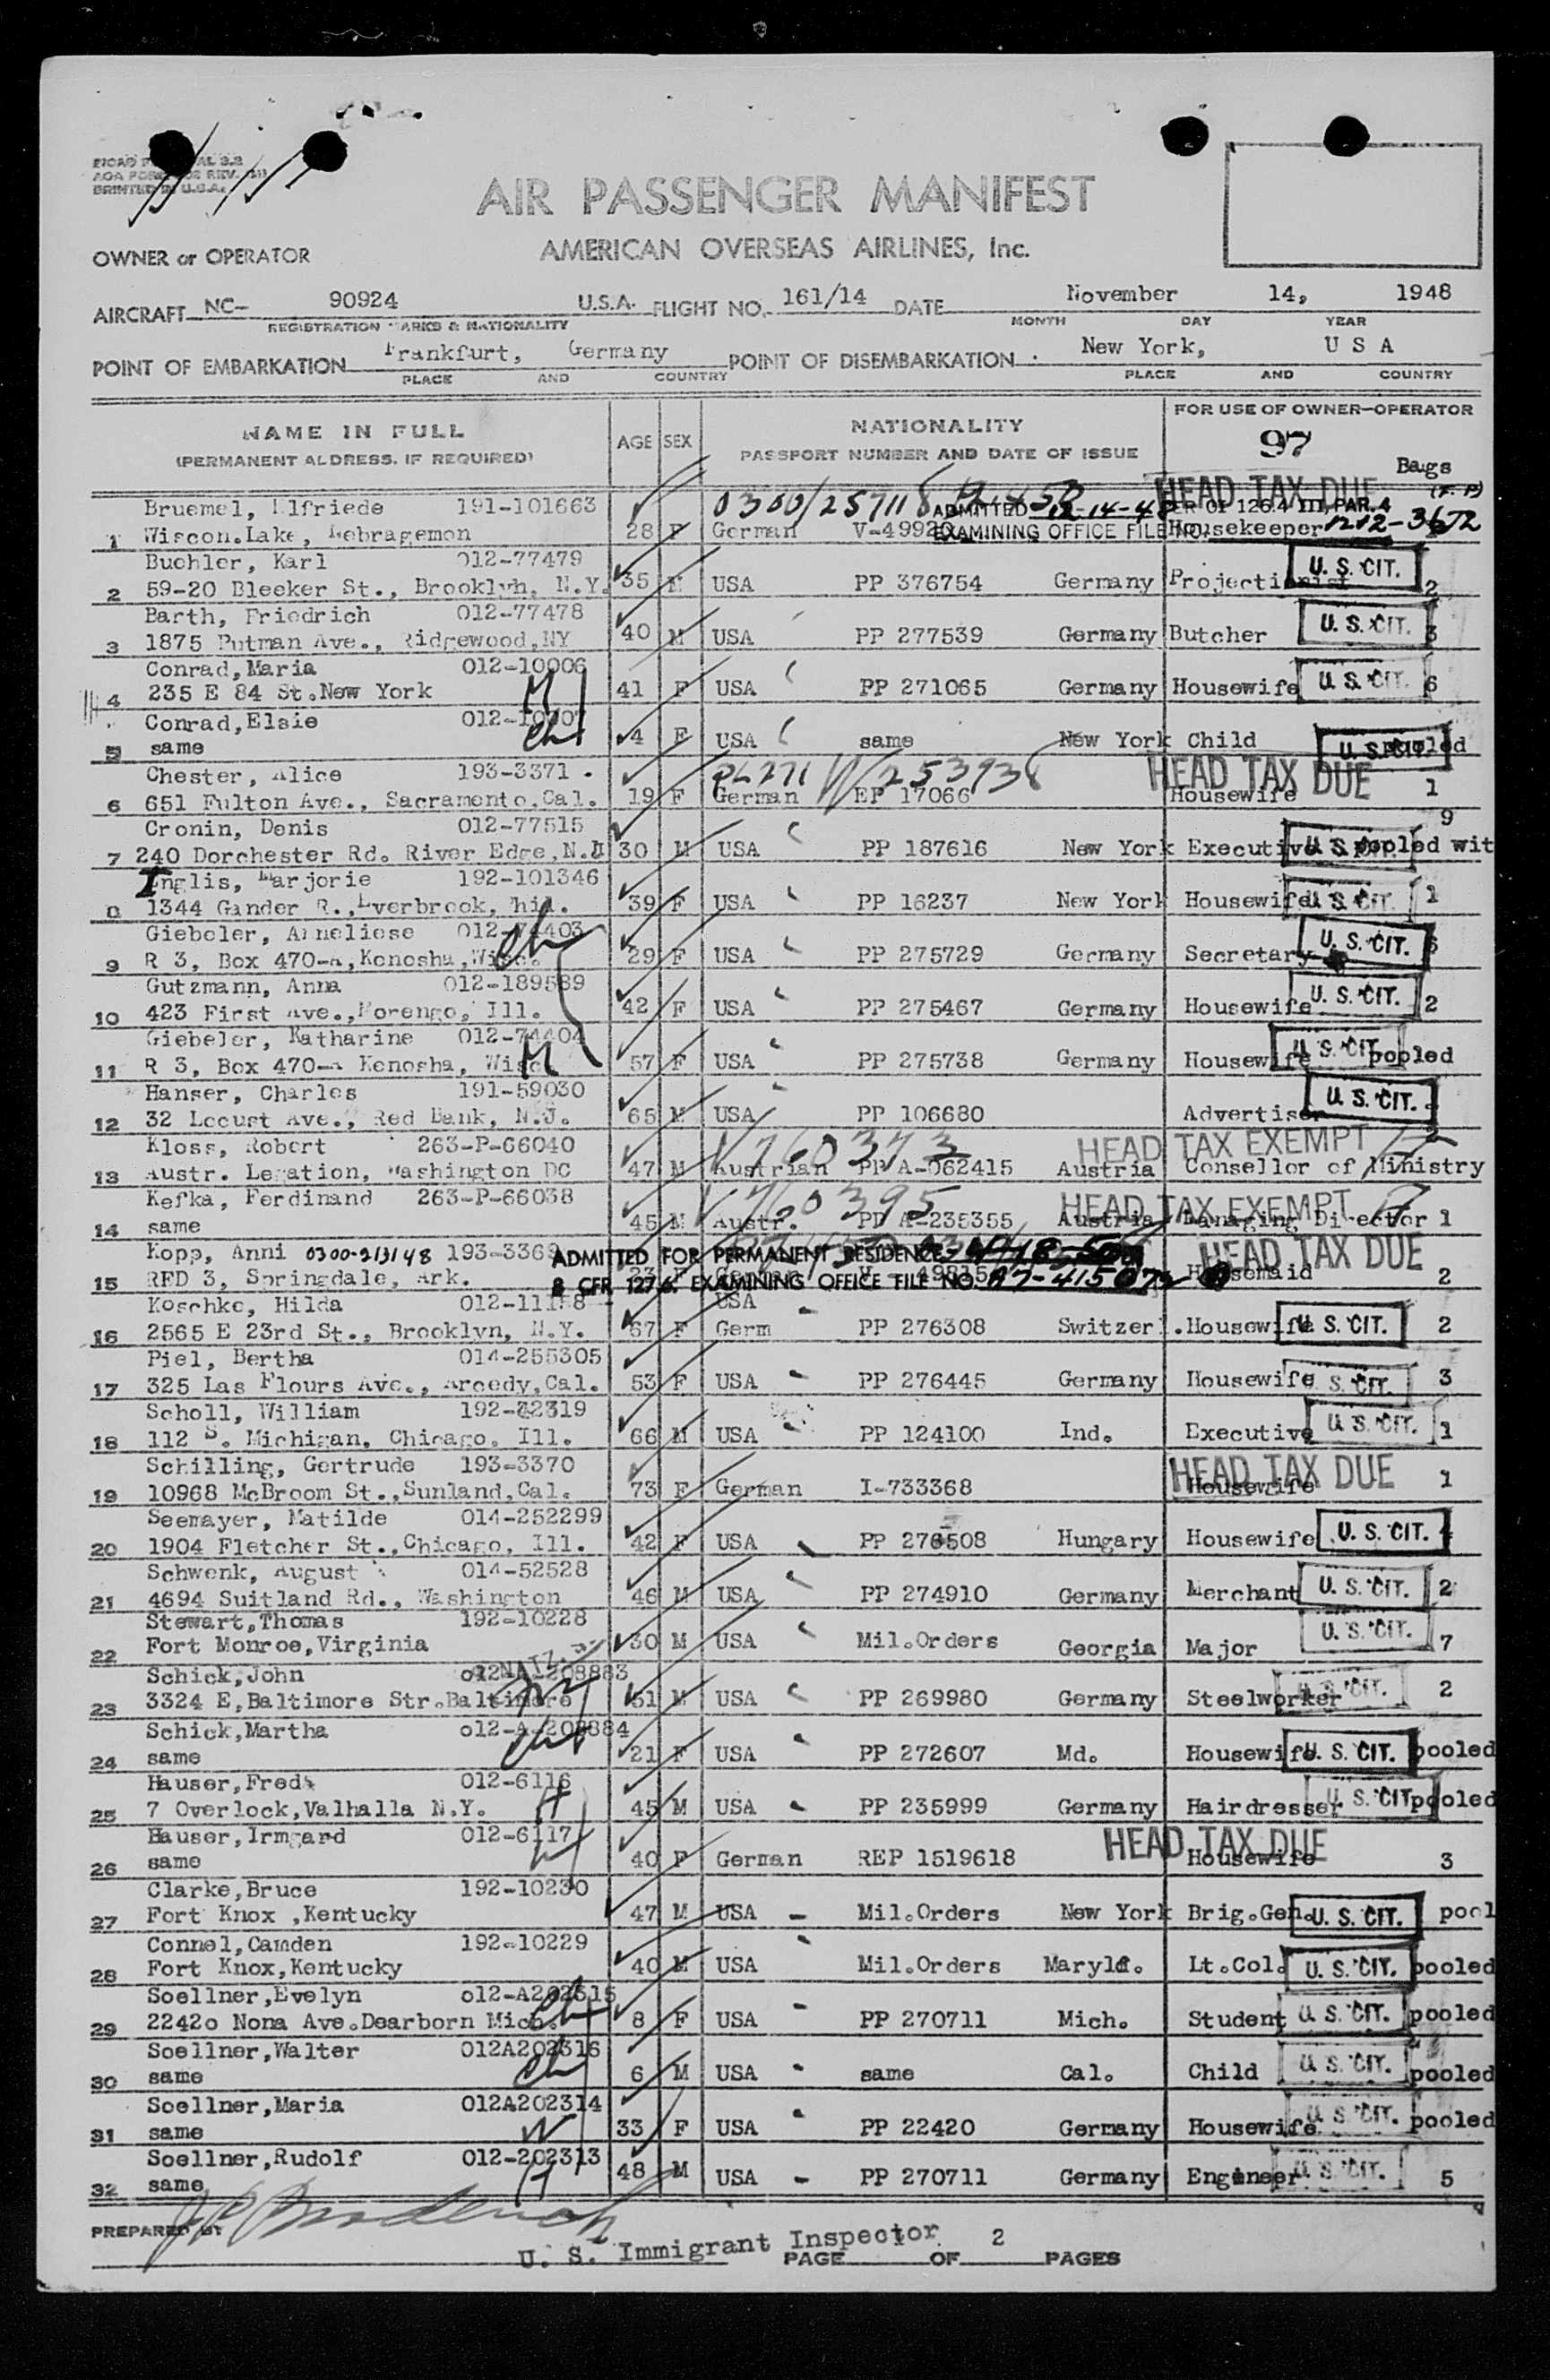 AIR PASSENGER MANIFEST
OWNER or OPERATOR AMERICAN OVERSEAS AIRLINES, Inc.
AIRCRAFT NC- 90924 U.S.A. FLIGHT NO. 161/14 DATE November 14, 1948
REGISTRATION MARKS & NATIONALITY MONTH DAY YEAR
POINT OF EMBARKATION Frankfurt, Germany POINT OF DISEMBARKATION New York, U S A
PLACE AND COUNTRY PLACE AND COUNTRY
NAME IN FULL AGE SEX NATIONALITY FOR USE OF OWNER-OPERATOR
(PERMANENT ADDRESS. IF REQUIRED) PASSPORT NUMBER AND DATE OF ISSUE 97 Bags
Bruemel, Elfriede 191-101663 0300/257118 ADMITTED HEAD TAX DUE
1 Wiscon.Lake, Nebragemon 28 F German EXAMINING OFFICE FILE NO. Housekeeper
Buehler, Karl 012-77479
2 59-20 Bleeker St., Brooklyn, N.Y. 35 M USA PP 376754 Germany Projectionist U. S. CIT. 2
Barth, Friedrich 012-77478
3 1875 Putman Ave., Ridgewood,NY 40 M USA PP 277539 Germany Butcher U. S. CIT. 3
Conrad,Maria 012-10006
4 235 E 84 St.New York M 41 F USA PP 271065 Germany Housewife U. S. CIT. 6
Conrad,Elsie 012-10007
5 same ch 4 F USA same New York Child U. S. CIT. pooled
Chester, Alice 193-3371 HEAD TAX DUE
6 651 Fulton Ave., Sacramento,Cal. 19 F German EP 17066 Housewife 1
Cronin, Denis 012-77515 9
7 240 Dorchester Rd. River Edge,N.J 30 M USA PP 187616 New York Executive U. S. CIT. pooled wit
Inglis, Marjorie 192-101346
8 1344 Gander R.,Everbrook, Phil. 39 F USA PP 16237 New York Housewife U. S. CIT. 1
Giebeler, Anneliese 012-74403
9 R 3, Box 470-A,Kenosha,Wisc. ch 29 F USA PP 275729 Germany Secretary U. S. CIT.
Gutzmann, Anna 012-189589
10 423 First Ave.,Morengo, Ill. 42 F USA PP 275467 Germany Housewife U. S. CIT. 2
Giebeler, Katharine 012-74404
11 R 3, Box 470-A Kenosha, Wisc M 57 F USA PP 275738 Germany Housewife U. S. CIT. pooled
Hanser, Charles 191-59030
12 32 Locust Ave., Red Bank, N.J. 65 M USA PP 106680 Advertiser U. S. CIT.
Kloss, Robert 263-P-66040 V760373 HEAD TAX EXEMPT
13 Austr. Legation, Washington DC 47 M Austrian PP A-062415 Austria Consellor of Ministry
Kefka, Ferdinand 263-P-66038 V760395 HEAD TAX EXEMPT
14 same 45 M Austr. PP A-235355 Austria Managing Director 1
Kopp, Anni 0300-213148 193-3369 ADMITTED FOR PERMANENT RESIDENCE HEAD TAX DUE
15 RFD 3, Springdale, Ark. 8 CFR 127.6. EXAMINING OFFICE FILE NO. Housemaid 2
Koschke, Hilda 012-11158 USA
16 2565 E 23rd St., Brooklyn, N.Y. 67 F Germ PP 276308 Switzerl. Housewife U. S. CIT. 2
Piel, Bertha 014-255305
17 325 Las Flours Ave., Arcedy,Cal. 53 F USA PP 276445 Germany Housewife U. S. CIT. 3
Scholl, William 192-82319
18 112 S. Michigan, Chicago, Ill. 66 M USA PP 124100 Ind. Executive U. S. CIT. 1
Schilling, Gertrude 193-3370 HEAD TAX DUE
19 10968 McBroom St.,Sunland,Cal. 73 F German I-733368 Housewife 1
Seemayer, Matilde 014-252299
20 1904 Fletcher St.,Chicago, Ill. 42 F USA PP 276508 Hungary Housewife U. S. CIT. 4
Schwenk, August 014-52528
21 4694 Suitland Rd., Washington 46 M USA PP 274910 Germany Merchant U. S. CIT. 2
Stewart,Thomas 192-10228
22 Fort Monroe,Virginia 30 M USA Mil.Orders Georgia Major U. S. CIT. 7
Schick,John o12-A-208883
23 3324 E,Baltimore Str.Baltimore 51 M USA PP 269980 Germany Steelworker U. S. CIT. 2
Schick,Martha o12-A-208884
24 same ch 21 F USA PP 272607 Md. Housewife U. S. CIT. pooled
Hauser,Fred 012-6116
25 7 Overlock,Valhalla N.Y. H 45 M USA PP 235999 Germany Hairdresser U. S. CIT. pooled
Hauser,Irmgard 012-6117 HEAD TAX DUE
26 same W 40 F German REP 1519618 Housewife 3
Clarke,Bruce 192-10230
27 Fort Knox ,Kentucky 47 M USA Mil.Orders New York Brig.Gen. U. S. CIT. pool
Connel,Camden 192-10229
28 Fort Knox,Kentucky 40 M USA Mil.Orders Maryld. Lt.Col. U. S. CIT. pooled
Soellner,Evelyn o12-A202315
29 2242o Nona Ave.Dearborn Mich. ch 8 F USA PP 270711 Mich. Student U. S. CIT. pooled
Soellner,Walter 012A202316
30 same ch 6 M USA same Cal. Child U. S. CIT. pooled
Soellner,Maria 012A202314
31 same W 33 F USA PP 22420 Germany Housewife U. S. CIT. pooled
Soellner,Rudolf 012-202313
32 same H 48 M USA PP 270711 Germany Engineer U. S. CIT. 5
PREPARED BY
U. S. Immigrant Inspector PAGE OF 2 PAGES